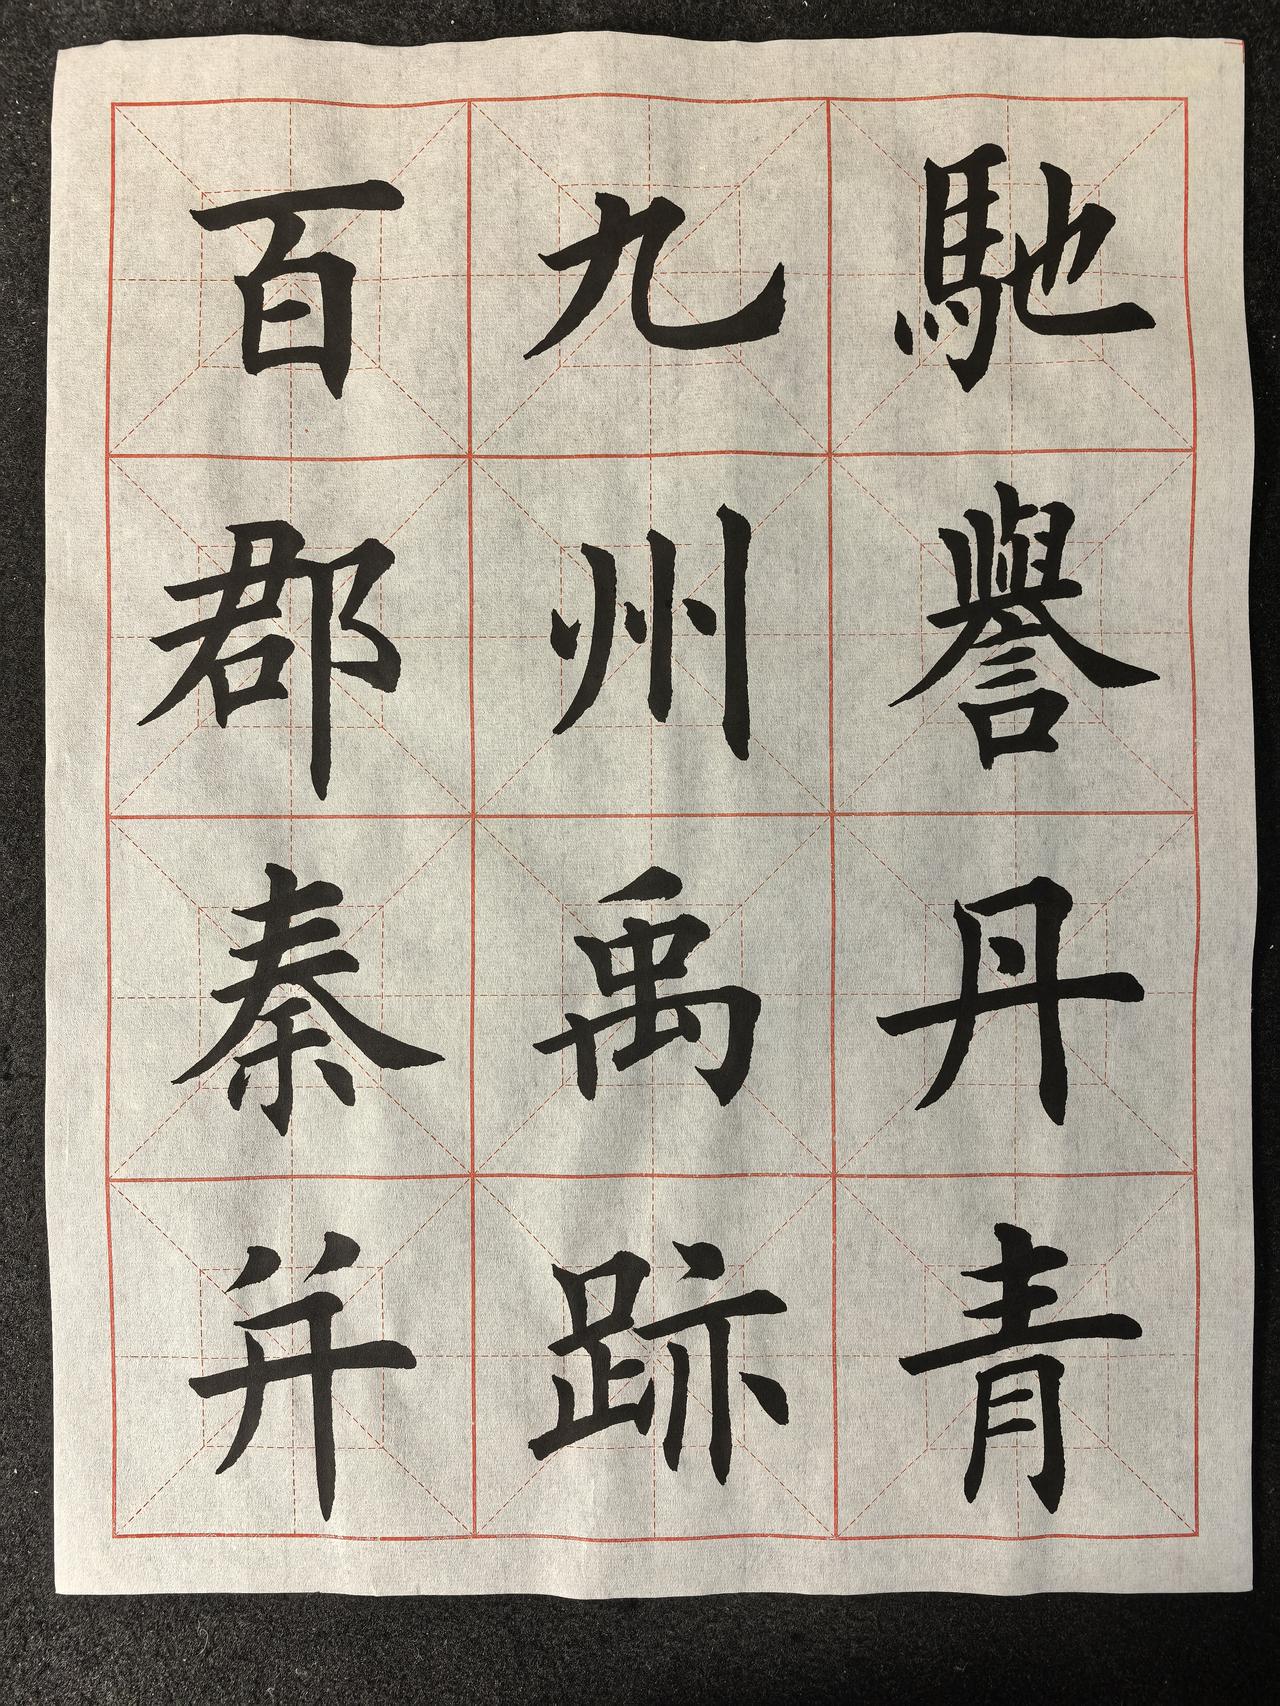 馳譽丹青
九州禹跡
百郡秦并